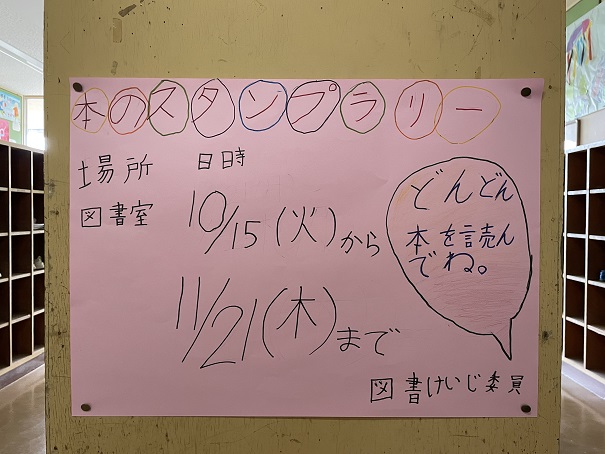 本のスタンプラリー
場所
図書室
日時
10/15(火)から
11/21(木)まで
どんどん
本を読ん
でね。
図書けいじ委員